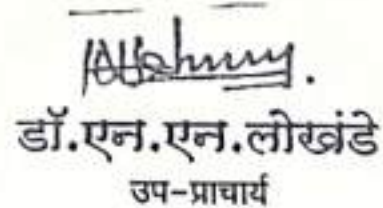 डॉ.एन.एन.लोखंडे
उप-प्राचार्य